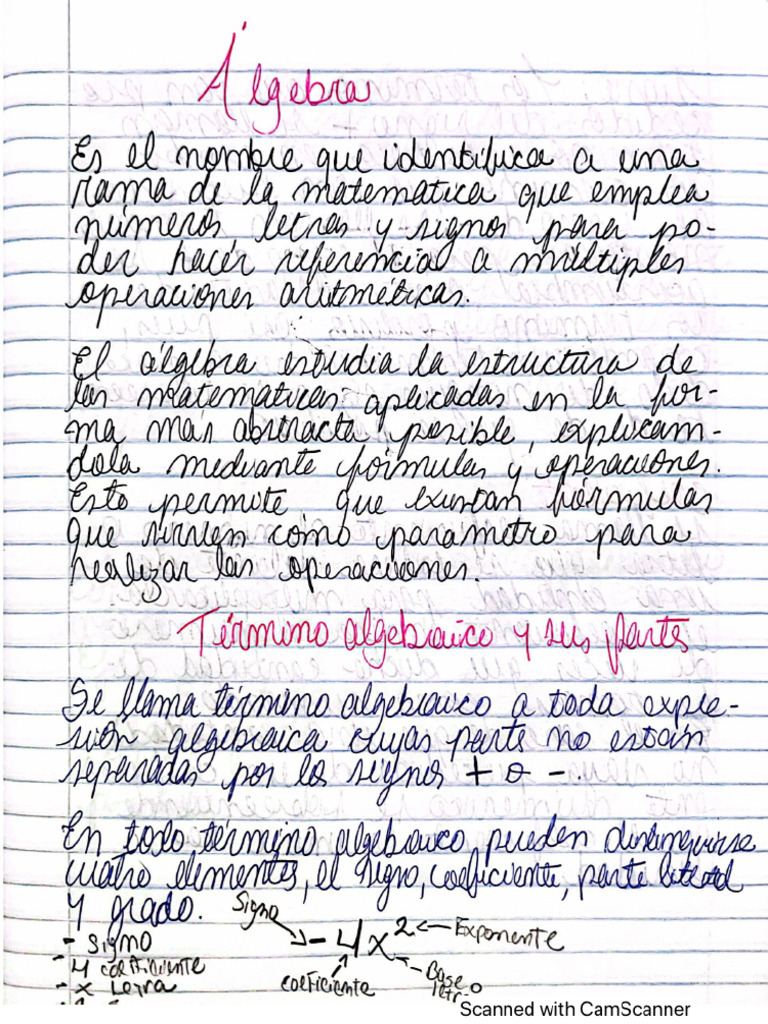 Álgebra
Es el nombre que identifica a una
rama de la matemática que emplea
números letras y signos para po-
der hacér referencia a múltiples
operaciones aritméticas.
El álgebra estudia la estructura de
las matematicas aplicadas en la for-
ma más abstracta posible, explicam-
dola mediante fórmulas y operaciones.
Esto permite que existan fórmulas
que sirven como parámetro para
realizar las operaciones.
Término algebraico y sus parts
Se llama término algebraico a toda expre-
sión algebraica cuyas parts no están
separadas por los signos + o -.
En todo término algebraico pueden distinguirse
cuatro elementos, el signo, coeficiente, parte literal
y grado.
Signo
- 4x² Exponente
- signo
4 coeficiente
- x Letra
coeficiente
Base
Scanned with CamScanner